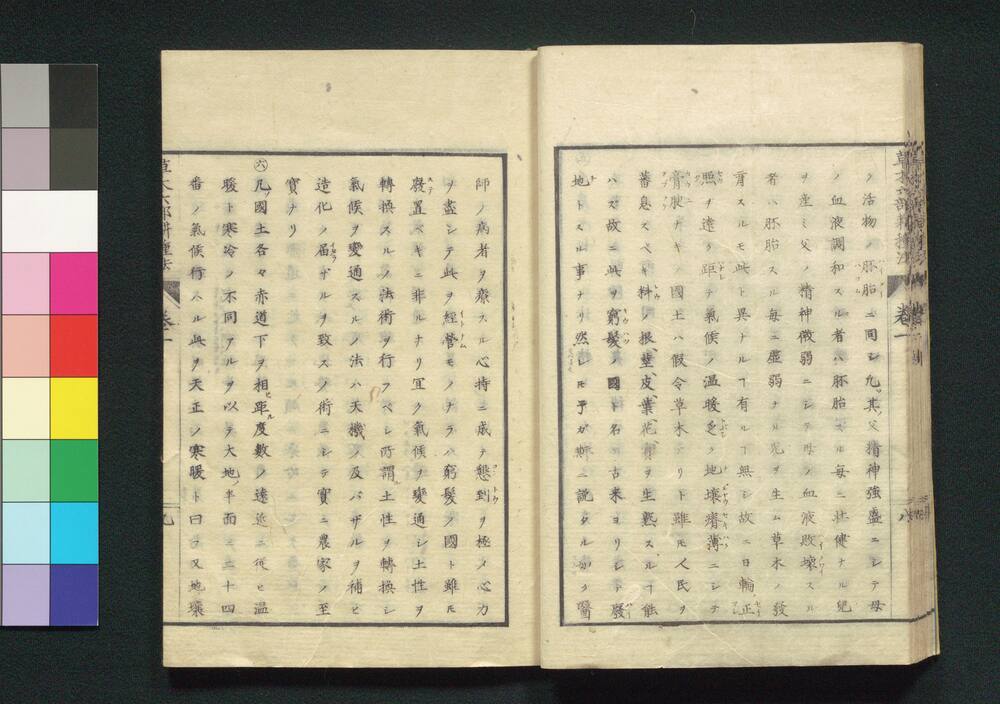 草木六部耕種法 卷一
ク活物ノ胚胎ニ同ジ凡其父精神強盛ニシテ母
ノ血液調和スル者ハ胚胎スル每ニ壯健ナル兒
ヲ產ミ父ノ精神微弱ニシテ母ノ血液敗壞スル
者ハ胚胎スル每ニ虛弱ナル兒ヲ生ム草木ノ發
育スルモ此ト異ナルヿ有ルヿ無シ故ニ日輪正
照ヲ遠ク距テ氣候ノ溫暖乏ク地壤瘠薄ニシテ
膏腴ナキノ國土ハ假令草木アリト雖モ人民ヲ
蕃息スベキ料ノ根莖皮葉花實ヲ生熟スルヿ能
ハズ故ニ此ヲ窮髮ノ國ト名ケ古來ヨリシテ廢
地トスル事ナリ然レモ予ガ悲ニ說タル如ク醫
八
師ノ病者ヲ療スル心持ニ成テ懇到ヲ極メ心力
ヲ盡シテ此ヲ經營モノナラハ窮髮ノ國ト雖モ
廢置ベキニ非ルナリ宜ク氣候ヲ變通シ土性ヲ
轉換スルノ法術ヲ行フベシ所謂土性ヲ轉換シ
氣候ヲ變通スルノ法ハ天機ノ及バザルヲ補ヒ
造化ノ届ザルヲ致スノ術ニシテ實ニ農家ノ至
寶ナリ
㊅凡ノ國土各々赤道下ヲ相距ル度數ノ遠近ニ從ヒ溫
暖ト寒冷ノ不同アルヲ以テ大地ノ半面ニ二十四
番ノ氣候行ハル此ヲ天正ノ寒暖ト曰フ又地壤
草木六部耕種法 卷一
九